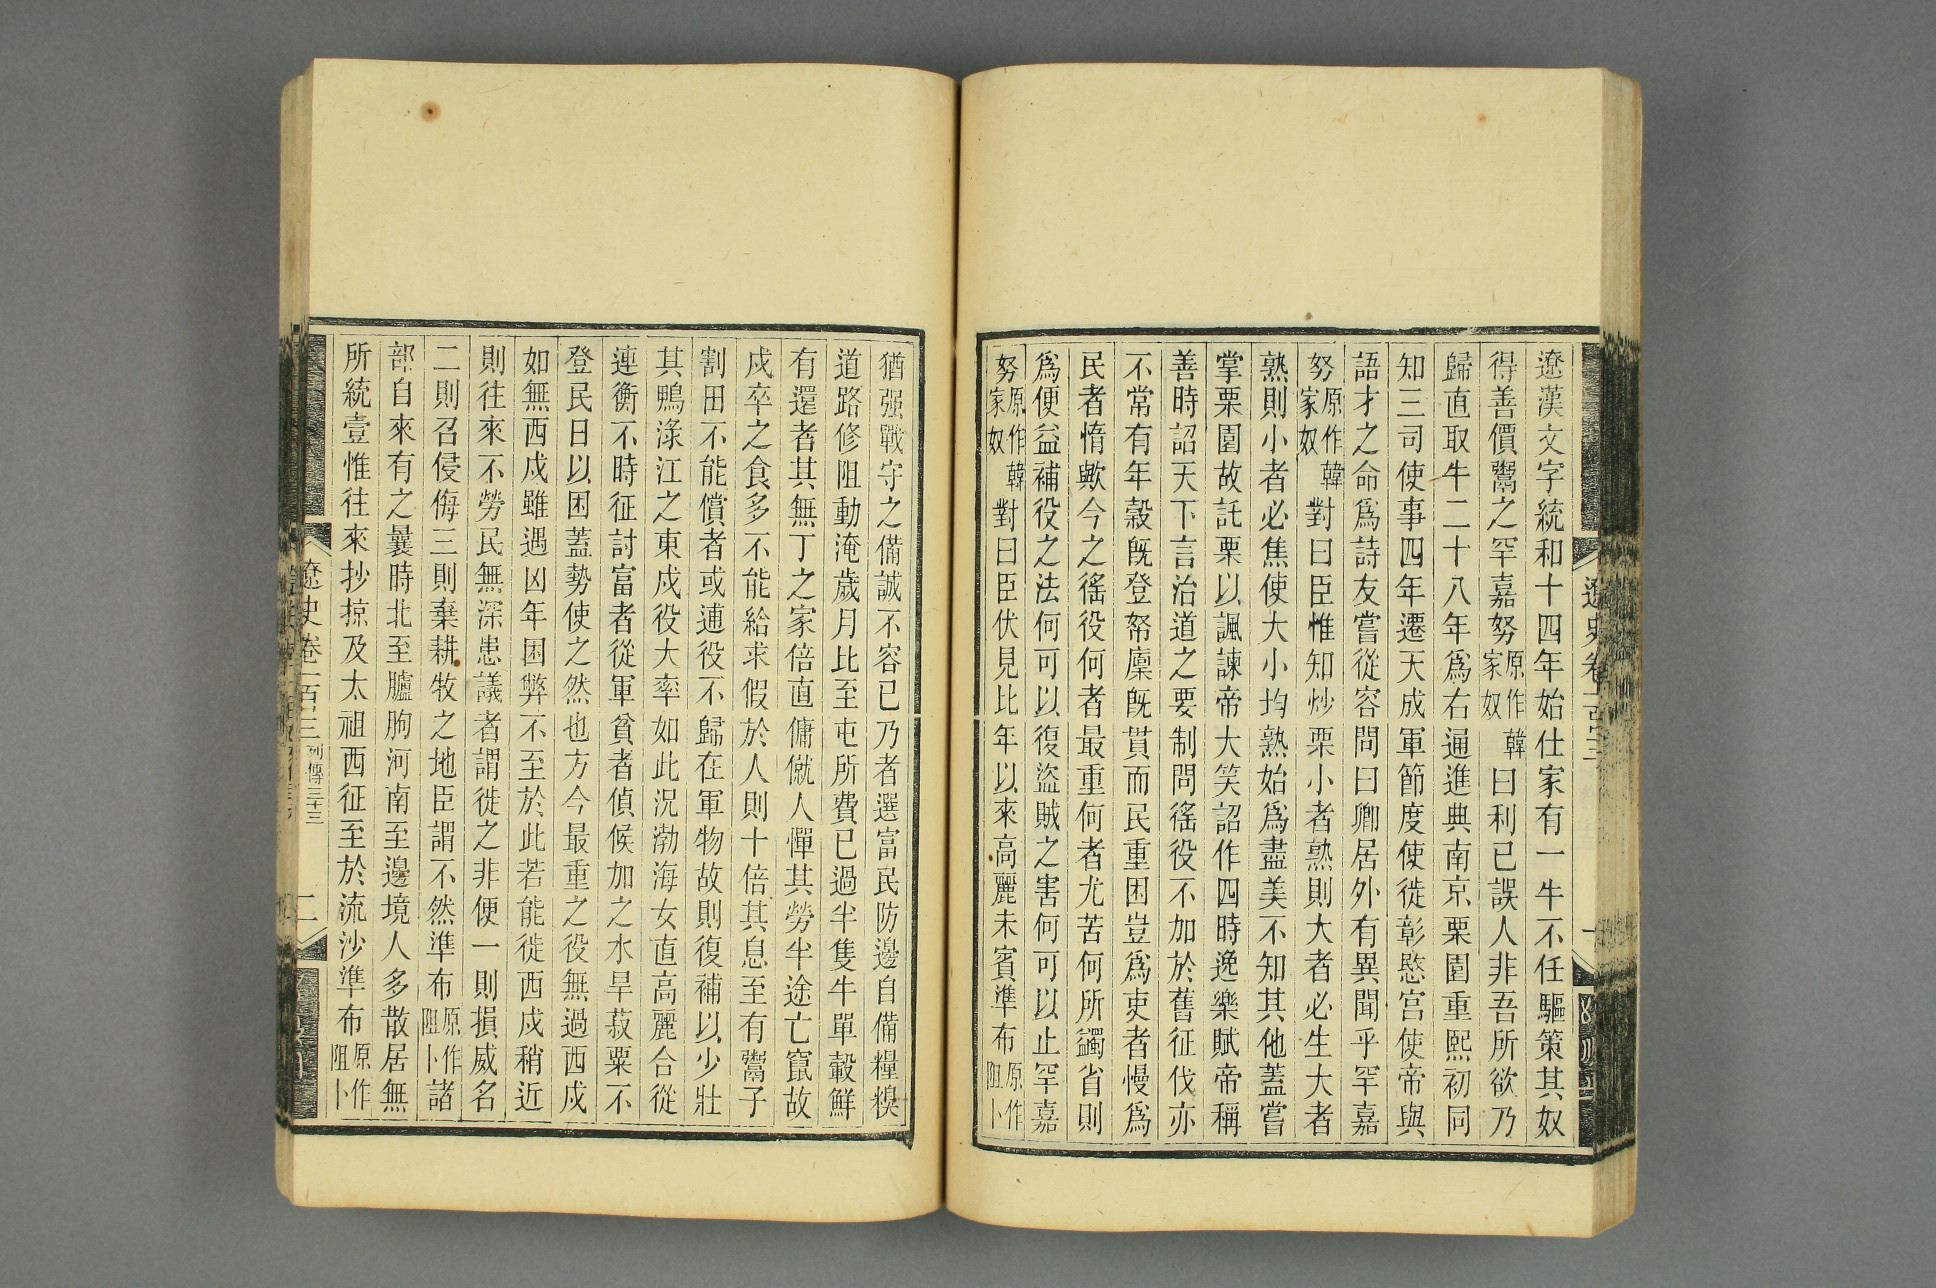 遼漢文字統和十四年始仕家有一牛不任驅策其奴
得善價鬻之罕嘉努原作韓家奴曰利已誤人非吾所欲乃
歸直取牛二十八年爲右通進典南京栗園重熙初同
知三司使事四年遷天成軍節度使徙彰愍宮使帝與
語才之命爲詩友嘗從容問曰卿居外有異聞乎罕嘉
努原作韓家奴對曰臣惟知炒栗小者熟則大者必生大者
熟則小者必焦使大小均熟始爲盡美不知其他蓋嘗
掌栗園故託栗以諷諫帝大笑詔作四時逸樂賦帝稱
善時詔天下言治道之要制問徭役不加於舊征伐亦
不常有年穀旣登帑廩旣貫而民重困豈爲吏者慢爲
民者惰歟今之徭役何者最重何者尤苦何所蠲省則
爲便益補役之法何可以復盜賊之害何可以止罕嘉
努原作韓家奴對曰臣伏見比年以來高麗未賓準布原作阻卜
猶强戰守之備誠不容已乃者選富民防邊自備糧糗
道路修阻動淹歲月比至屯所費已過半隻牛單轂鮮
有還者其無丁之家倍直傭僦人憚其勞半途亡竄故
戍卒之食多不能給求假於人則十倍其息至有鬻子
割田不能償者或逋役不歸在軍物故則復補以少壯
其鴨淥江之東戍役大率如此況渤海女直高麗合從
連衡不時征討富者從軍貧者偵候加之水旱菽粟不
登民日以困蓋勢使之然也方今最重之役無過西戍
如無西戍雖遇凶年困弊不至於此若能徙西戍稍近
則往來不勞民無深患議者謂徙之非便一則損威名
二則召侵侮三則棄耕牧之地臣謂不然準布原作阻卜諸
部自來有之曩時北至臚朐河南至邊境人多散居無
所統壹惟往來抄掠及太祖西征至於流沙準布原作阻卜
遼史卷一百三 列傳三十三
二